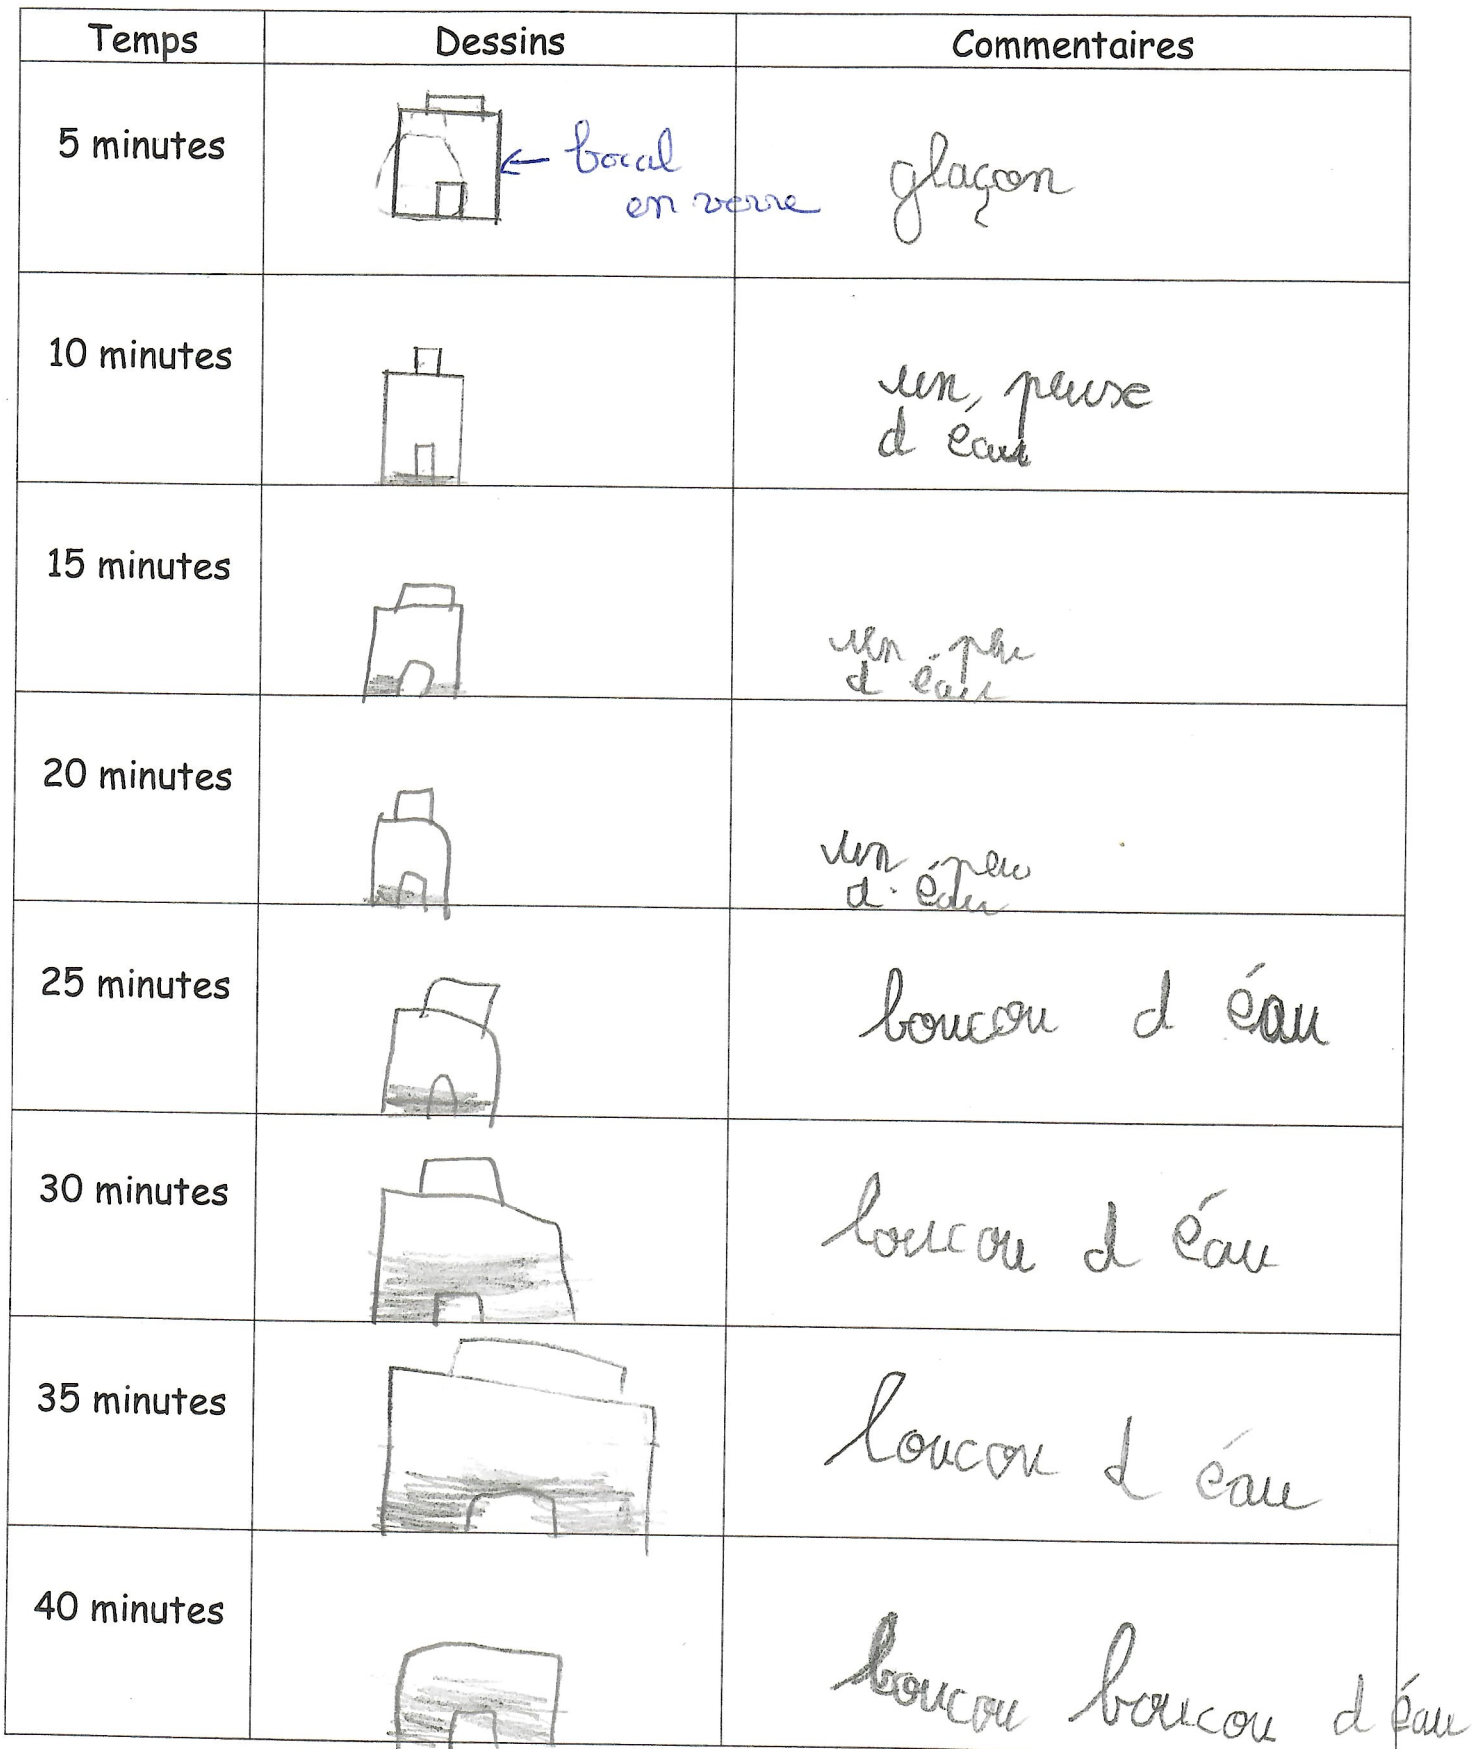 Temps Dessins Commentaires
5 minutes
← bocal
en verre
glaçon
10 minutes
un, peuse
d éau
15 minutes
un peu
d éau
20 minutes
un peu
d éau
25 minutes
boucou d éau
30 minutes
boucou d éau
35 minutes
boucou d éau
40 minutes
boucou boucou d éau